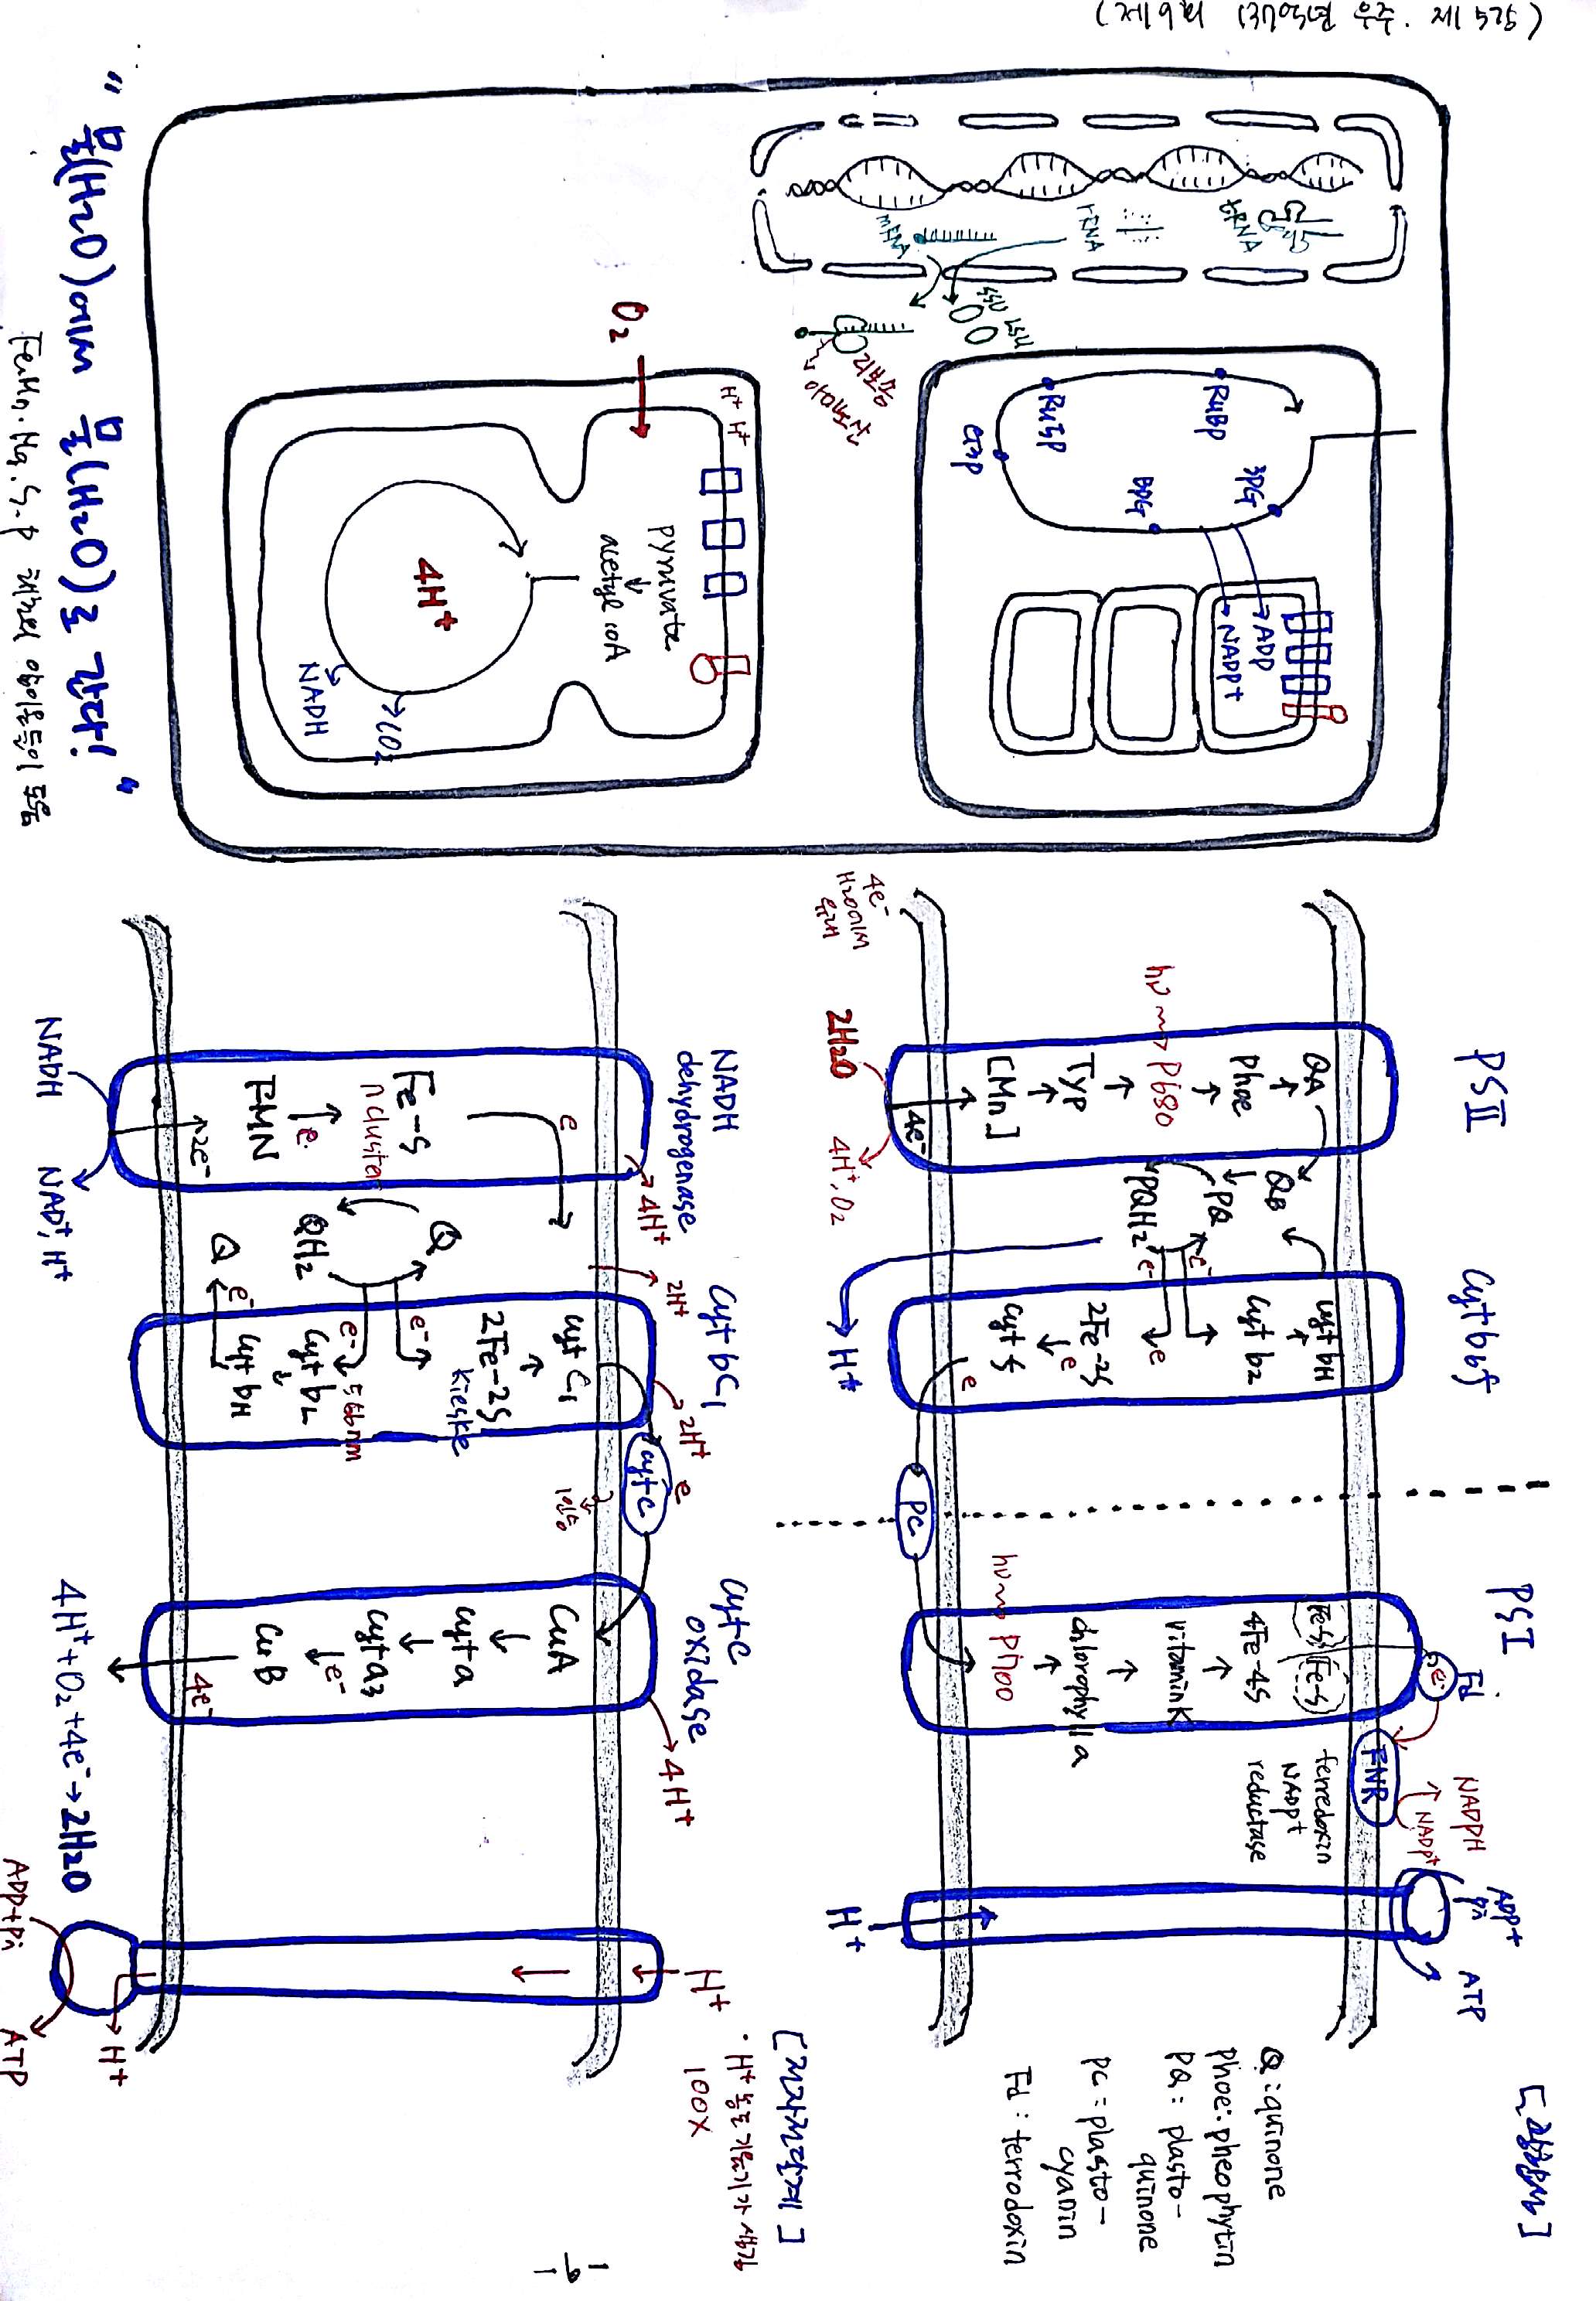 (제9회 137억년 우주. 제5강)
[광합성]
PSⅡ
Cyt b6f
PSI
QA
Phoe
hν P680
Typ
[Mn]
4e-
2H2O
4H+, O2
4e-
H2O에서
유래
QB
PQ
PQH2
e-
e-
H+
cyt bH
cyt b2
e
2Fe-2S
e
cyt f
e
PC
Fe-S
Fe-S
4Fe-4S
vitamin K
chlorophyll a
hν P700
Fd
e-
FNR
ferredoxin
NADP+
reductase
NADPH
NADP+
ADP+
Pi
ATP
H+
Q: quinone
Phoe: pheophytin
PQ: plasto-
quinone
PC = plasto-
cyanin
Fd : ferrodoxin
tRNA
rRNA
mRNA
SSU
LSU
리보솜
아미노산
RuBP
3PG
Ru5P
BPG
G3P
ADP
NADP+
O2
H+ H+
pyruvate
↓
acetyl CoA
4H+
NADH
CO2
[전자전달계]
· H+ 농도 기울기가 생김
100X
NADH
dehydrogenase
Cyt bC1
Cyt C
oxidase
4H+
e
Fe-S
n cluster
e
FMN
2e-
NADH
NAD+, H+
2H+
Q
QH2
Q
e-
e-
e-
2H+
cyt C1
2Fe-2S
Rieske
cyt bL
566nm
cyt bH
cyt C
e
이동
CuA
cyt a
cyt a3
e-
CuB
4e-
4H+
4H+ + O2 + 4e- → 2H2O
H+
H+
ADP+Pi
ATP
"물(H2O)에서 물(H2O)로 간다!"
Fe. Mn. Mg. S. P
- 9 -